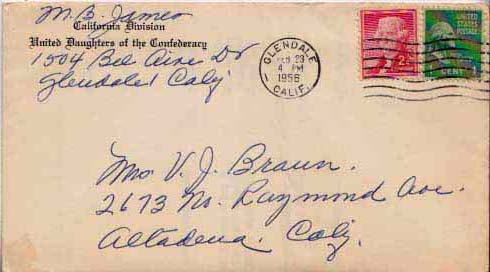 M. B. James
California Division
United Daughters of the Confederacy
1504 Bel Aire Dr
Glendale 1 Calif
GLENDALE
FEB 23
4 PM
1956
CALIF.
2¢
UNITED STATES
POSTAGE
1 CENT 1
Mrs V. J. Braun.
2673 No. Raymond Ave.
Altadena. Calif.